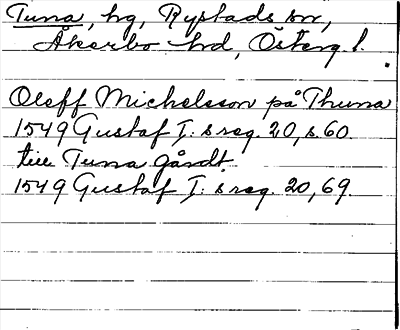 Tuna, hg, Rystads sn,
Åkerbo hd, Österg. l.
Oleff Michelsson på Thuna
1549 Gustaf I: s reg. 20, s. 60.
till Tuna gårdt.
1549 Gustaf I: s reg. 20, 69.